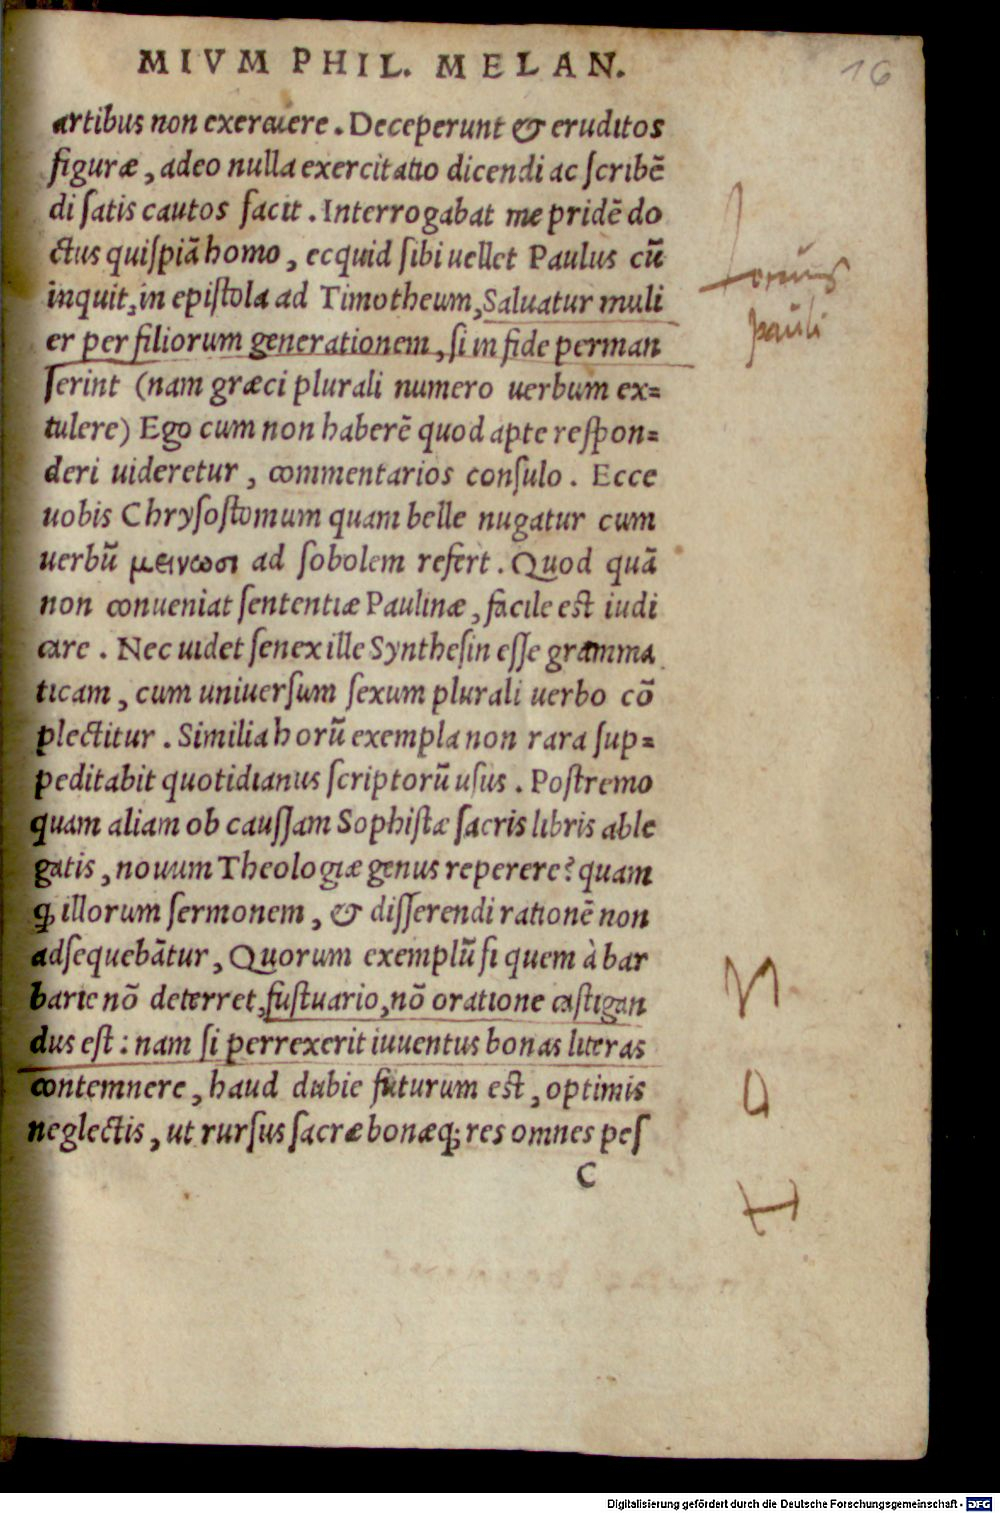 MIVM PHIL. MELAN.
16
artibus non exercuere. Deceperunt & eruditos
figuræ, adeo nulla exercitatio dicendi ac ſcribē
di ſatis cautos facit. Interrogabat me pridē do
ctus quiſpiā homo, ecquid ſibi uellet Paulus cū
inquit, in epiſtola ad Timotheum, Saluatur muli
er per filiorum generationem, ſi in fide perman
ſerint (nam græci plurali numero uerbum ex=
tulere) Ego cum non haberē quod apte reſpon=
deri uideretur, commentarios conſulo. Ecce
uobis Chryſoſtomum quam belle nugatur cum
uerbū μεινωσι ad ſobolem refert. Quod quā
non conueniat ſententiæ Paulinæ, facile eſt iudi
care. Nec uidet ſenex ille Syntheſin eſſe gramma
ticam, cum uniuerſum ſexum plurali uerbo cō
plectitur. Similia horū exempla non rara ſup=
peditabit quotidianus ſcriptorū uſus. Poſtremo
quam aliam ob cauſſam Sophiſtæ ſacris libris able
gatis, nouum Theologiæ genus reperere? quam
ꝙ illorum ſermonem, & diſſerendi rationē non
adſequebātur, Quorum exemplū ſi quem à bar
barie nō deterret, fuſtuario, nō oratione caſtigan
dus eſt: nam ſi perrexerit iuuentus bonas literas
contemnere, haud dubie futurum eſt, optimis
neglectis, ut rurſus ſacræ bonæq; res omnes peſ
C
Locus
pauli
N
a
Digitalisierung gefördert durch die Deutsche Forschungsgemeinschaft - DFG